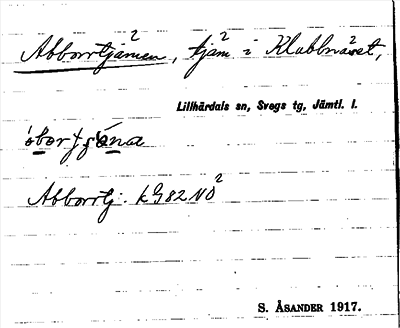 Abborrtjärnen, tjärn i Klubbnäset,
Lillhärdals sn, Svegs tg, Jämtl. l.
Abborrtj. kG82NO
S. ÅSANDER 1917.